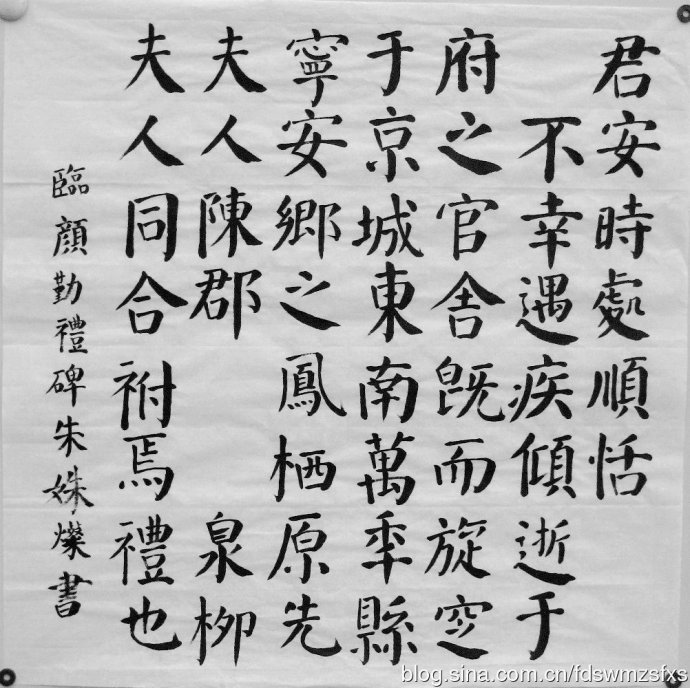 君安時處順恬
不幸遇疾傾逝于
府之官舍既而旋窆
于京城東南萬年縣
寧安鄉之鳳栖原先
夫人陳郡 泉柳
夫人同合祔焉禮也
臨顏勤禮碑朱姝燦書
blog.sina.com.cn/fdswmzsfxs